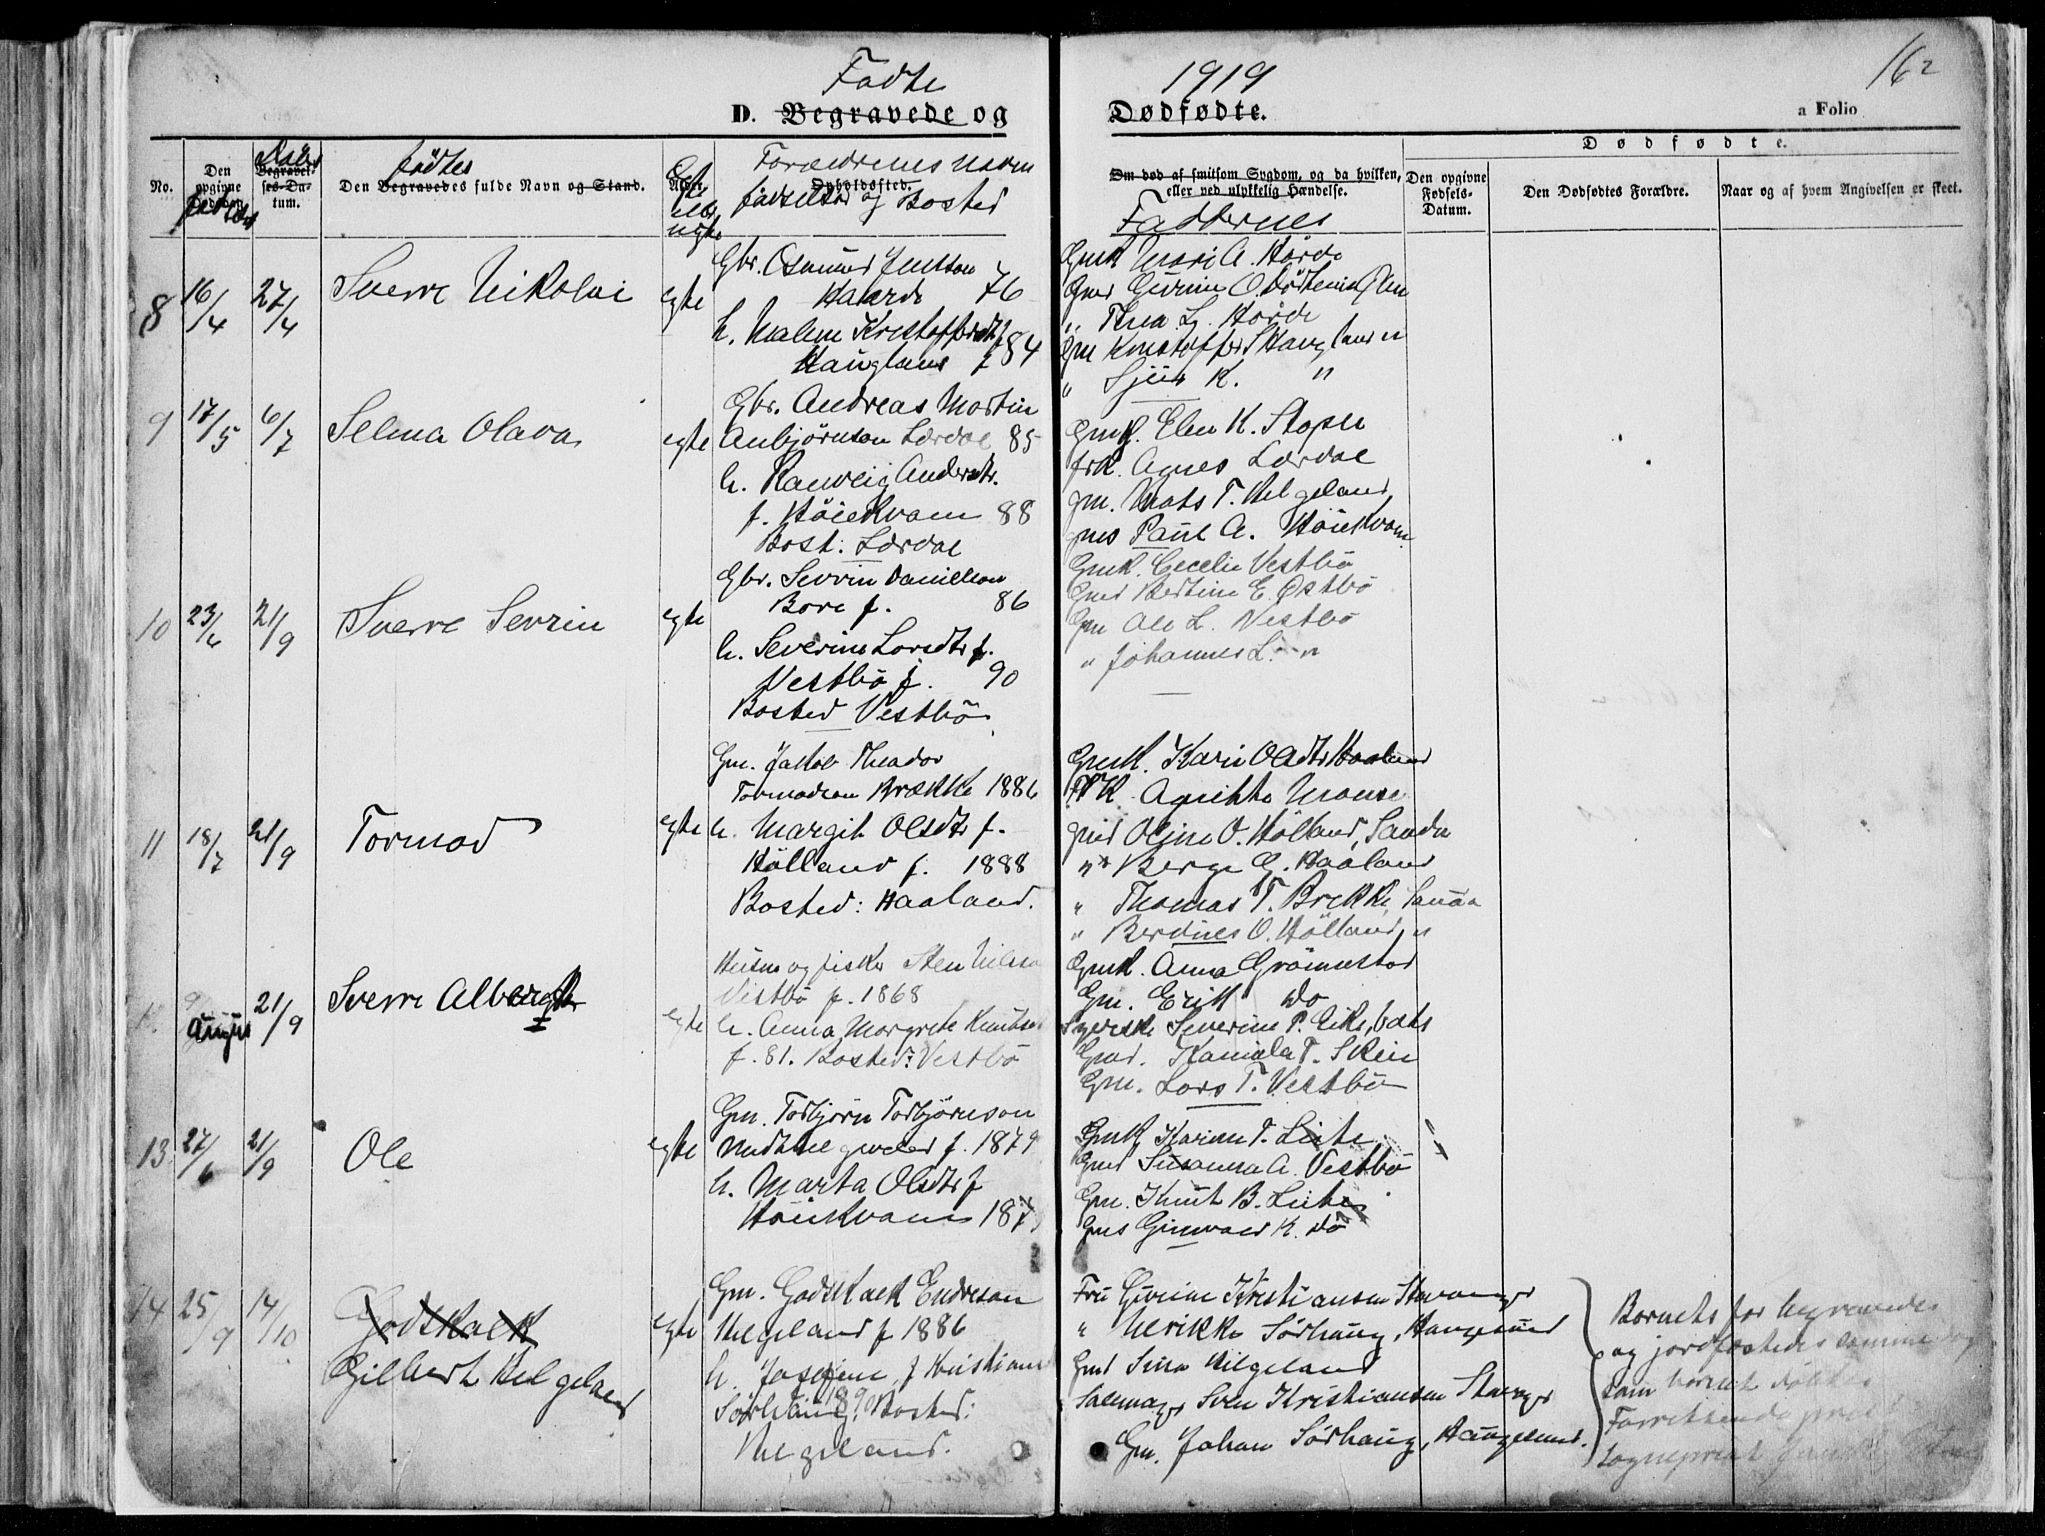 Fødte 1919
162
D. Begravede og Dødfødte.
a Folio
No.
Den opgivne Dødsdag
Daabs
Begravelses-Datum.
fødtes
Den Begravedes fulde Navn og Stand.
Egte ell. uegte
Forældrenes navn
Opholdssted.
fødselsår og Bosted
Om død af smitsom Sygdom, og da hvilken, eller ved ulykkelig Hændelse.
Faddernes
Dødfødte.
Den opgivne Fødsels-Datum.
Den Dødfødtes Forældre.
Naar og af hvem Angivelsen er skeet.
8 16/4 27/4 Sverre Nikolai egte
Gbr. Osmund Jensson
Haarde 76
h. Malene Kristoffersdtr
Haugland f 84
Gmk Mari A. Hårde
" Thea L. Hårde
Gm Kristoffer S Haugland
" Sjur K. "
9 17/5 6/7 Selma Olava egte
Gbr. Andreas Martin
Anbjørnsen Lærdal 85
h. Ranveig Andersdtr.
f. Höiekvam 88
Bost: Lærdal
Gmk. Elen K. Stople
frk. Agnes Lærdal
gm. Mats T. Helgeland
Paul A. Höiekvam
10 23/6 21/9 Sverre Sevrin egte
Gbr. Sevrin Danielson
Bore f. 86
h. Severine Larsdtr f.
Vestbö f. 90
Bosted Vestbö.
Gmk. Cecelie Vestbö
Bertine E. Østbö
Gm Ole L. Vestbö
" Johannes L. "
11 18/7 21/9 Tormod egte
Gm. Jakob Theador
Tormodson Brække 1886
h. Margit Olsdtr f.
Hölland f. 1888
Bosted: Haaland.
Gmk. Kari Olsdtr Haaland
Oline O. Hölland, Sandn
" Berge G. Haaland
" Thomas T. Brekke, Sauda
" Berdines O. Hölland "
21/9 Sverre Albergt egte
Husm og fisker Sten Nilsen
Vestbö f. 1868
h. Anna Margrete Knuts
f. 81. Bosted: Vestbö
Gmk. Anna Grönnestad
Gm. Erik Do
Severine P. Eike, Vats
Kamilla T. Skeie
Gm. Lars T. Vestbö
13 27/6 21/9 Ole egte
Gm. Torbjörn Torbjörnson
f. 1879
h. Marta Olsdtr f
Höiekvam 187
Gmk Karine T. Liete
Susanna A. Vestbö
Gm. Knut B. Liete
Gunvald K. Do
14 25/9 14/10 Godskalk egte
Gilbert Helgeland
Gm. Godskalk Endreson
Helgeland f 1886
h. Josefine f Kristians
Sörhaug. 1890 Bosted:
Helgeland.
Fru Gurine Kristiansen Stavanger
" Ulrikke Sörhaug, Haugesund
Sina Helgeland
Sven Kristiansen Stavanger
Gm. Johan Sörhaug, Haugesund.
Barnets far begravedes
og jordfæstedes samme dag
som barnet döbtes
Forrettende prest
sogneprest